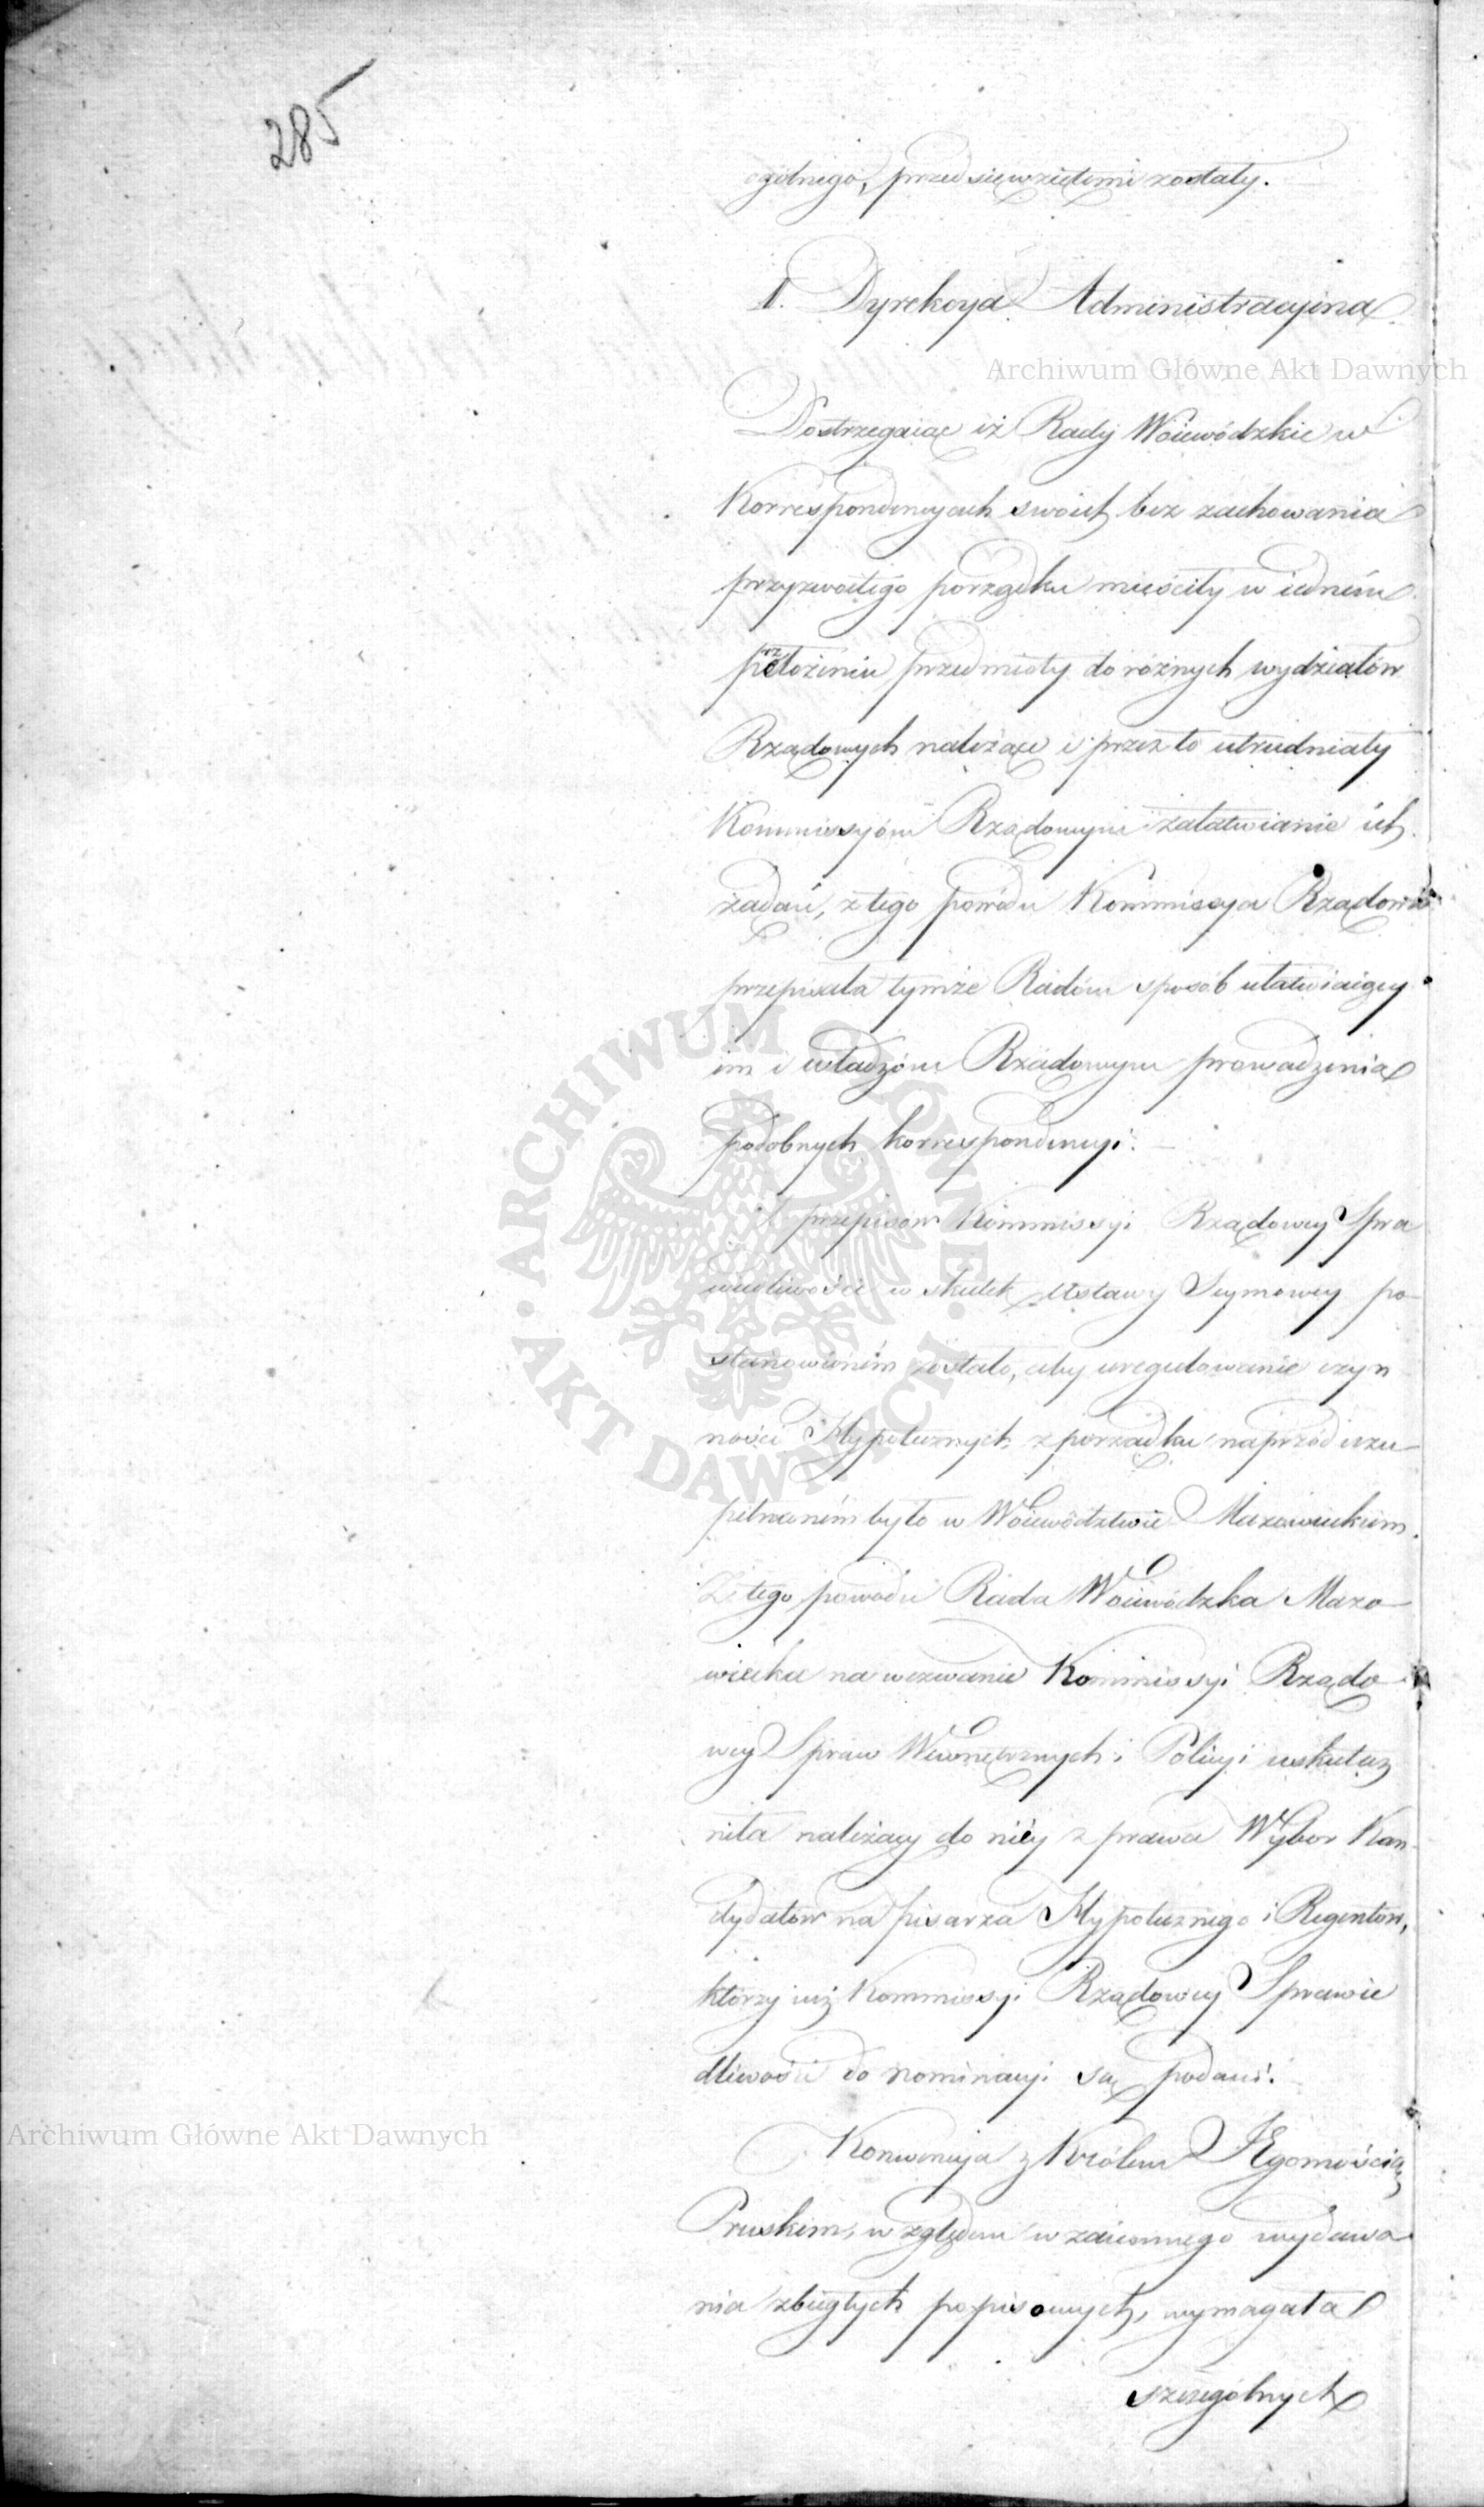 285
ogólnego, przedsięwziętemi zostały.
I. Dyrekcya Administracyjna
Archiwum Główne Akt Dawnych
Dostrzegaiąc iż Rady Woiewódzkie w
Korrespondencyach swoich bez zachowania
przyzwoitego porządku mieściły w iedném
przełożeniu przedmioty do różnych wydziałów
Rządowych należące i przez to utrudniały
Kommissyóm Rządowym załatwianie ich
żądań, z tego powodu Kommissya Rządowa
przepisała tymże Radóm sposób ułatwiaiący
im i władzóm Rządowym prowadzenia
podobnych korrespondencyi.
Z przepisów Kommissyi Rządowey Spra
wiedliwości w skutek Ustawy Seymowey po-
stanowioném zostało, aby uregulowanie czyn
ności Hypotecznych z porządku naprzód uzu-
pełnioném było w Woiewództwie Mazowieckiem.
Z tego powodu Rada Woiewódzka Mazo-
wiecka na wezwanie Kommissyi Rządo-
wey Spraw Wewnętrznych i Policyi uskutecz
niła należący do niéy z prawa Wybor Kan-
dydatów na pisarza Hypotecznego i Regentów,
którzy iuż Kommissyi Rządowey Sprawie
dliwości do nominacyi są podani.
Archiwum Główne Akt Dawnych
Konwencyja z Królem JEgomością
Pruskim, względem wzaiemnego wydawa-
nia zbiegłych popisowych, wymagała
szczególnych
ARCHIWUM GŁÓWNE · AKT DAWNYCH ·